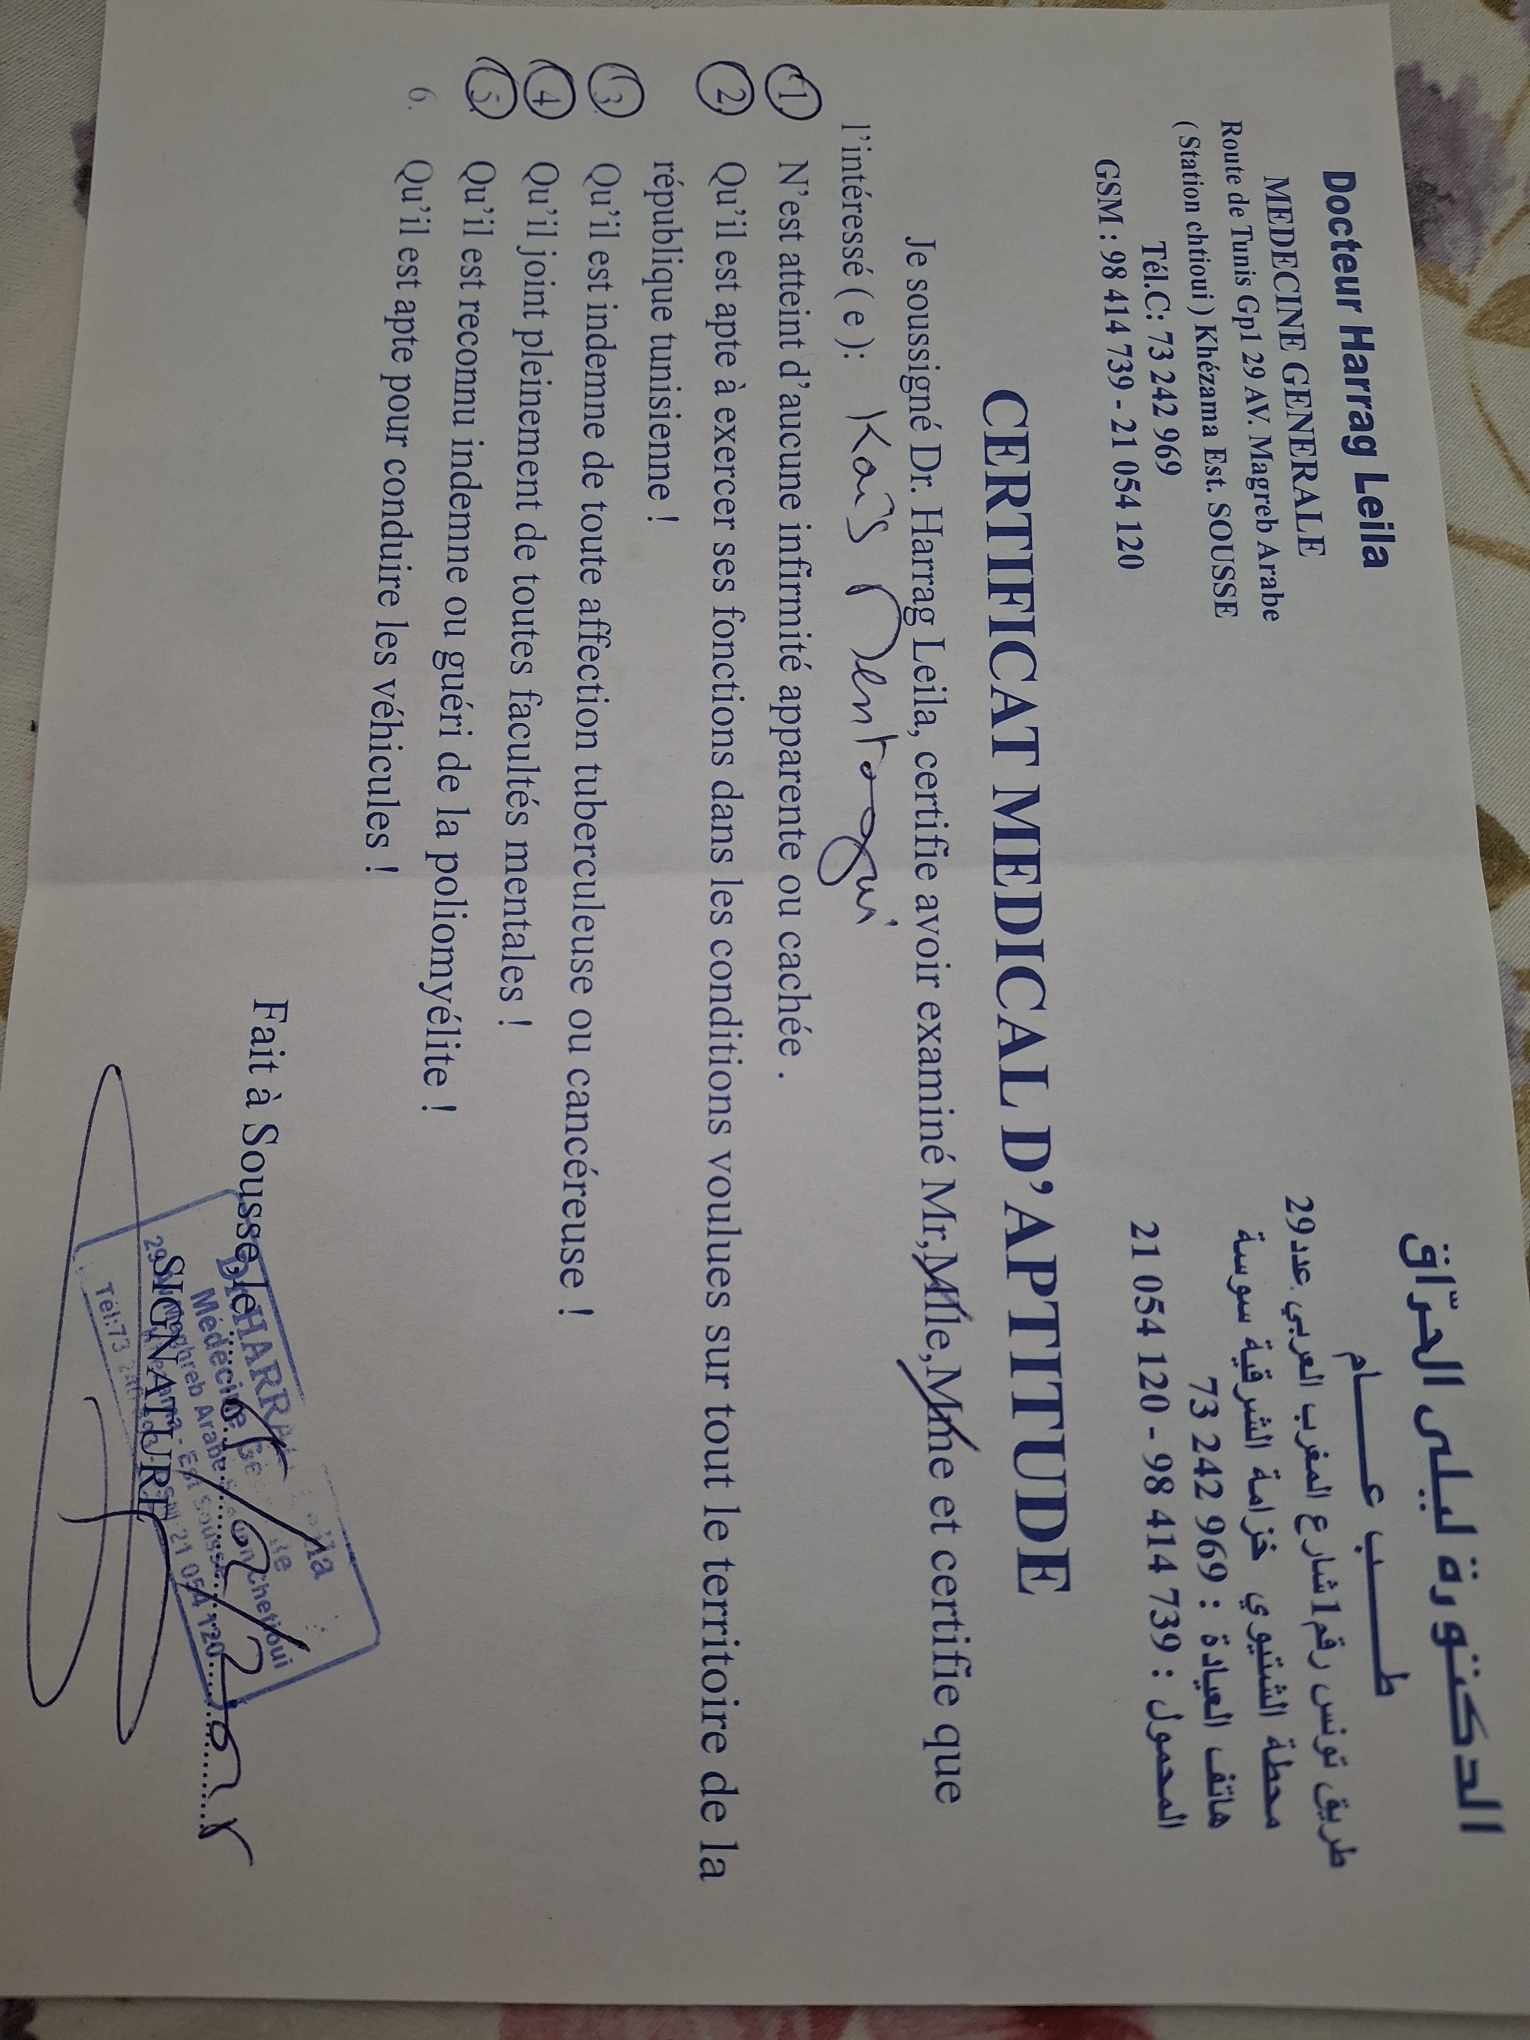 Docteur Harrag Leila
MEDECINE GENERALE
Route de Tunis Gp1 29 AV. Magreb Arabe
( Station chtioui ) Khézama Est. SOUSSE
Tél.C: 73 242 969
GSM : 98 414 739 - 21 054 120
الدكتورة ليلى الحرّاق
طــــب عــــام
طريق تونس رقم 1 شارع المغرب العربي عدد 29
محطة الشتيوي خزامة الشرقية سوسة
هاتف العيادة : 969 242 73
المحمول : 739 414 98 - 120 054 21
CERTIFICAT MEDICAL D'APTITUDE
Je soussigné Dr. Harrag Leila, certifie avoir examiné Mr, Mlle, Mme et certifie que
l'intéressé ( e ): Kais
1 N'est atteint d'aucune infirmité apparente ou cachée .
2 Qu'il est apte à exercer ses fonctions dans les conditions voulues sur tout le territoire de la
république tunisienne !
3. Qu'il est indemne de toute affection tuberculeuse ou cancéreuse !
4 Qu'il joint pleinement de toutes facultés mentales !
5. Qu'il est reconnu indemne ou guéri de la poliomyélite !
6. Qu'il est apte pour conduire les véhicules !
Fait à Sousse,le
SIGNATURE
Dr HARRAG
Médecine
29 Maghreb Arabe
Est Sousse
Tél:73 21 054 120